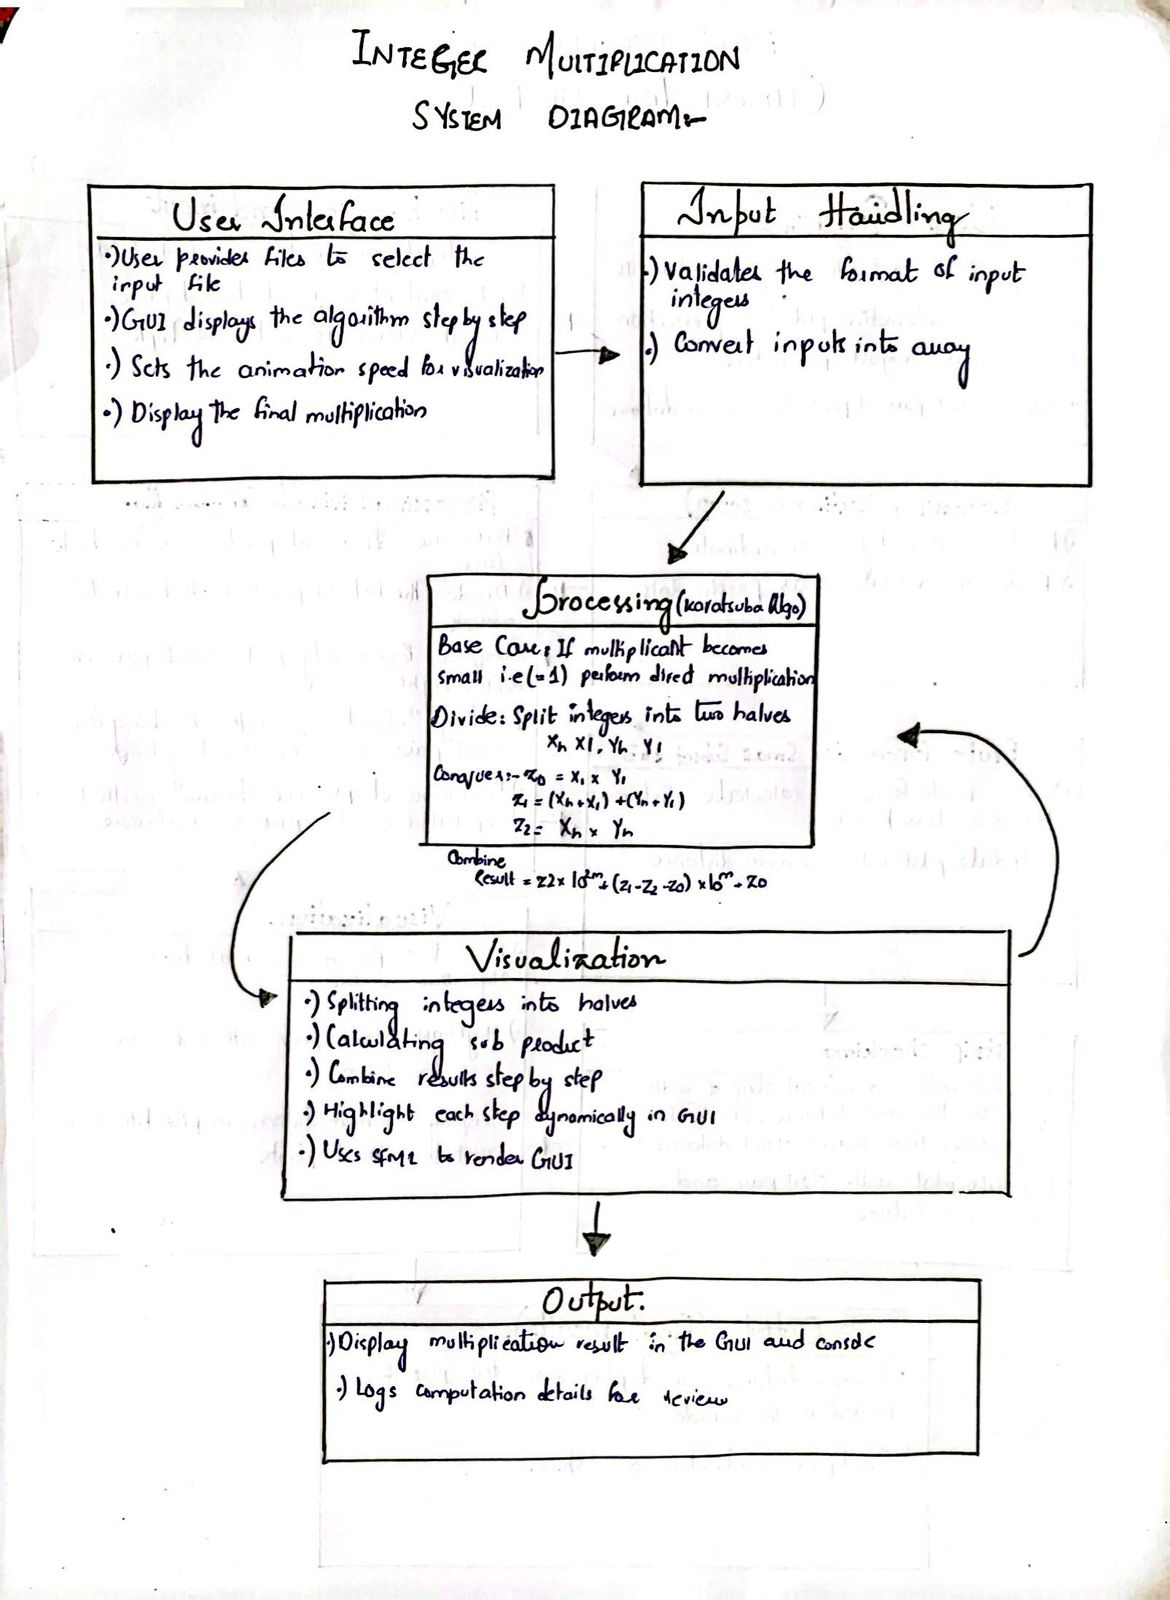 INTEGER MULTIPLICATION
SYSTEM DIAGRAM:-
User Interface
·) User provides files to select the
input file
·) GUI displays the algorithm step by step
·) Sets the animation speed for visualization
·) Display the final multiplication
Input Handling
·) Validates the format of input
integers
·) Convert inputs into array
Processing (Karatsuba Algo)
Base Case: If multiplicant becomes
small i.e (=1) perform direct multiplication
Divide: Split integers into two halves
Xh X1, Yh Y1
Conquer:- Z0 = X1 x Y1
Z1 = (Xh + X1) + (Yh + Y1)
Z2 = Xh x Yh
Combine
Result = Z2 x 10^2m + (Z1 - Z2 - Z0) x 10^m + Z0
Visualization
·) Splitting integers into halves
·) Calculating sub product
·) Combine results step by step
·) Highlight each step dynamically in GUI
·) Uses SFML to render GUI
Output.
·) Display multiplication result in the GUI and console
·) Logs computation details for review